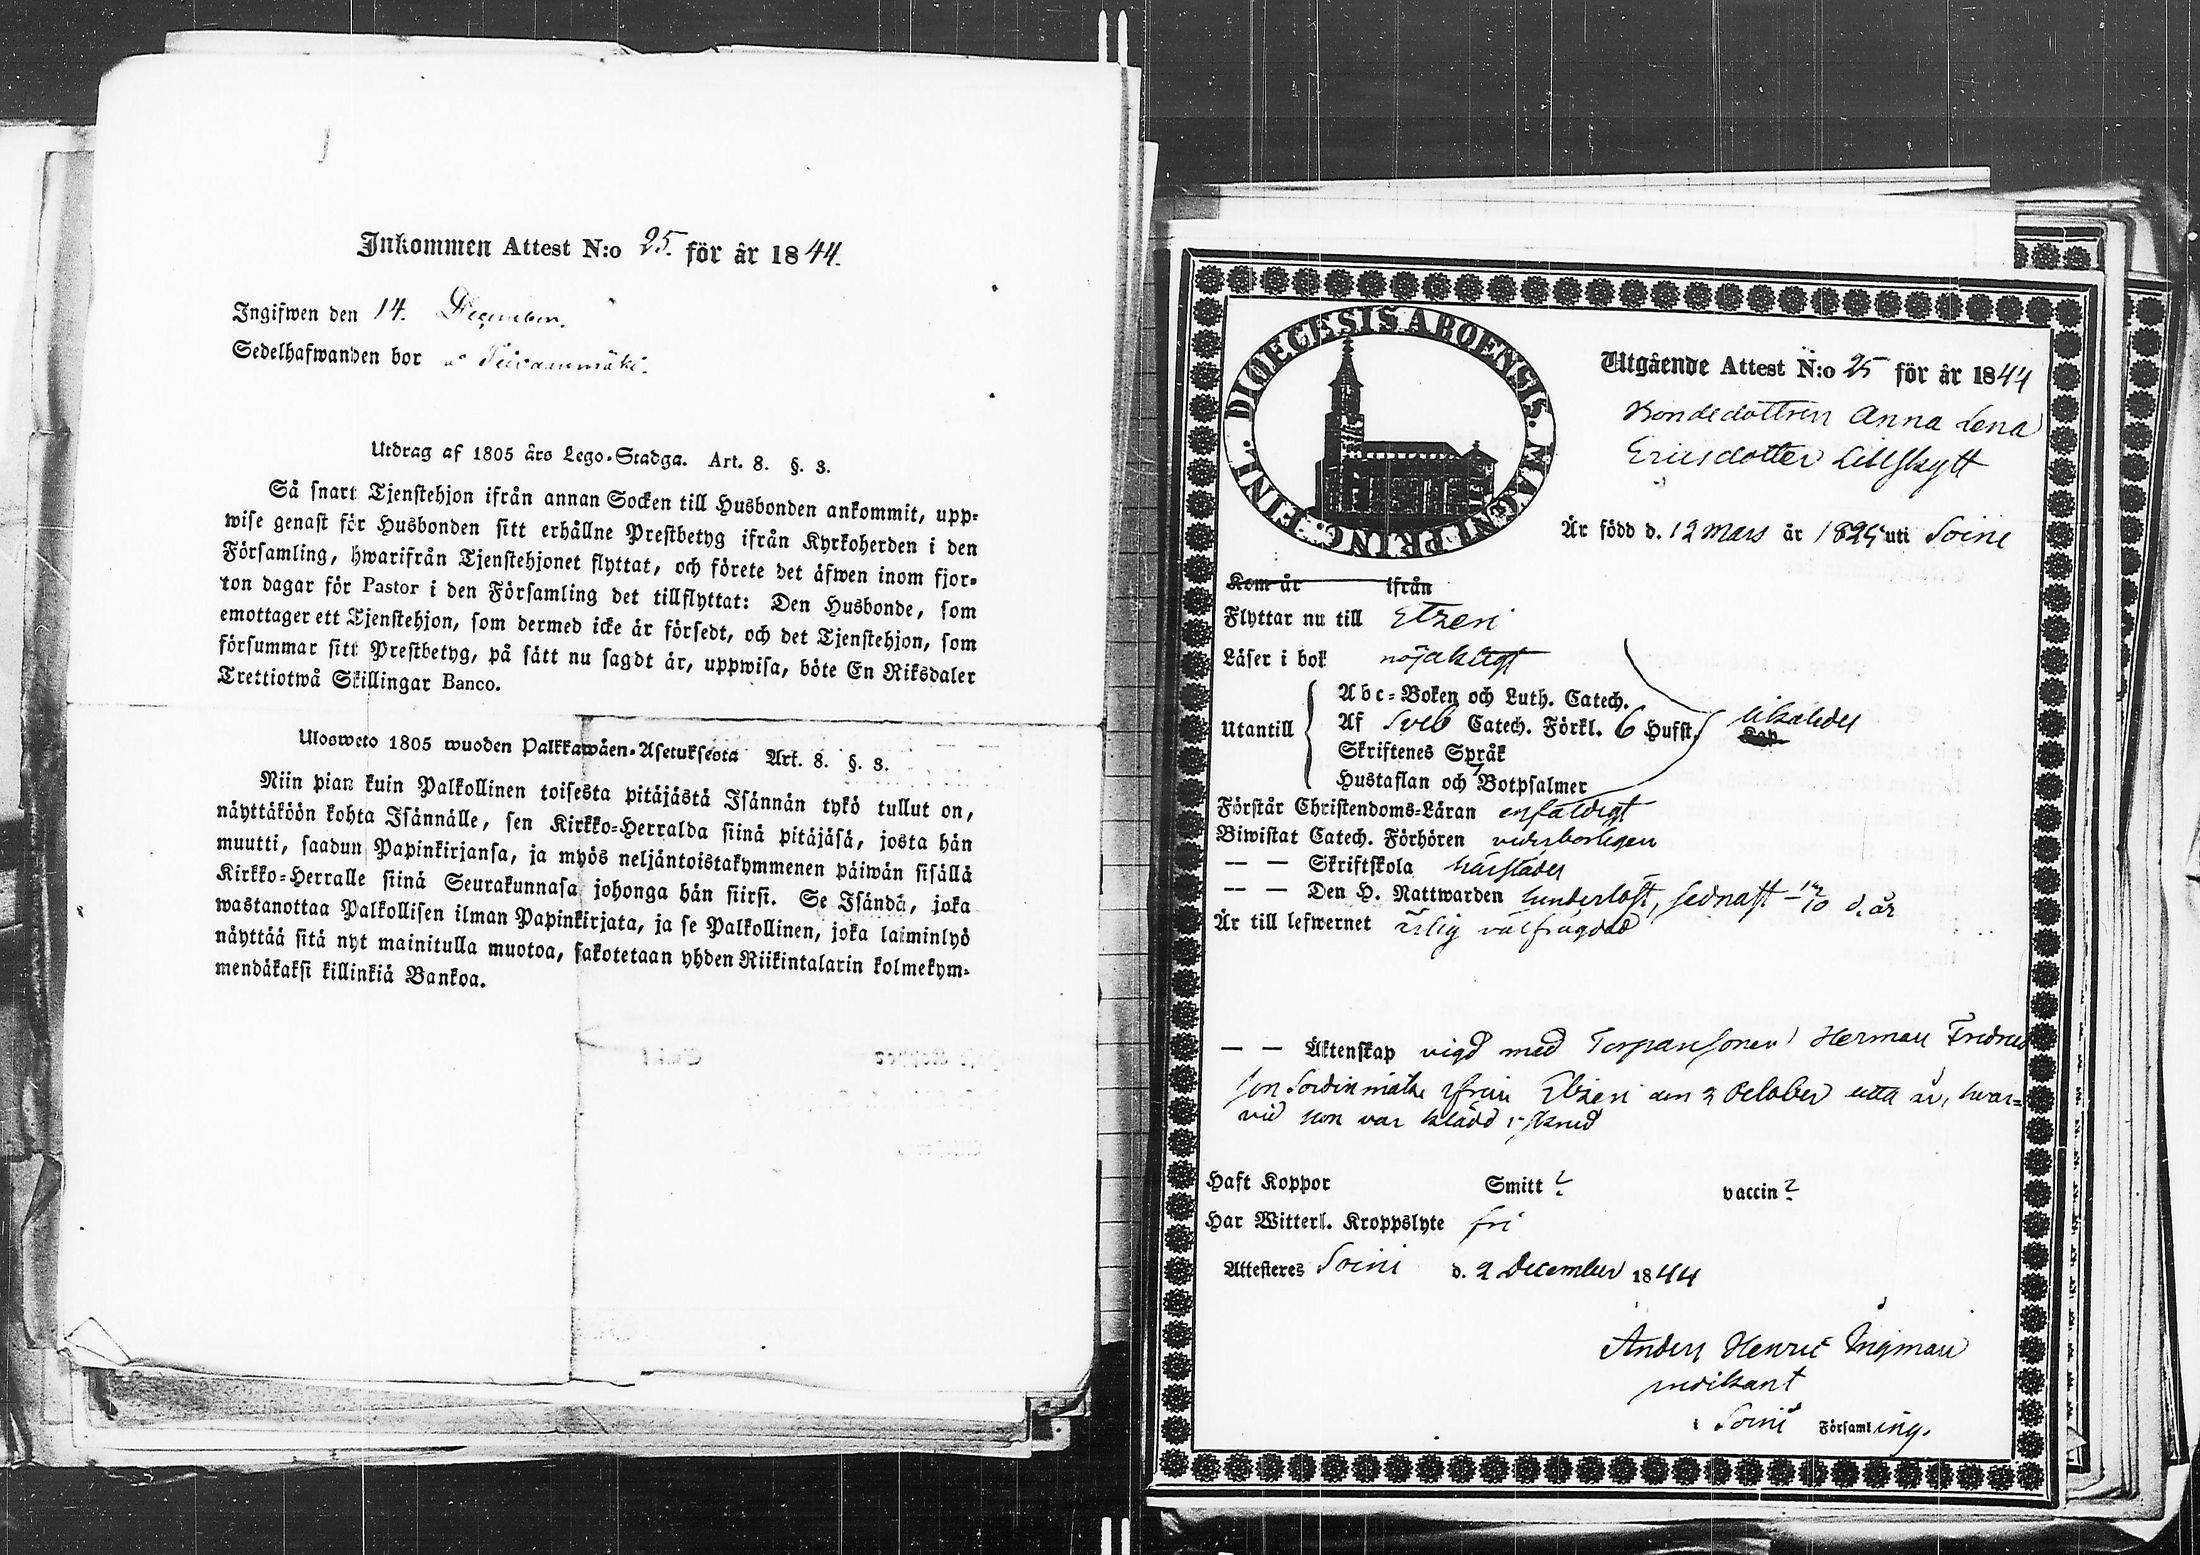 Inkommen Attest N:o 25. för år 1844.
Ingifwen den 14. December.
Sedelhafwanden bor å
Utdrag af 1805 års Lego-Stadga. Art. 8. §. 3.
Så snart Tjenstehjon ifrån annan Socken till Husbonden ankommit, upp-
wise genast för Husbonden sitt erhållne Prestbetyg ifrån Kyrkoherden i den
Församling, hwarifrån Tjenstehjonet flyttat, och förete det äfwen inom fjor-
ton dagar för Pastor i den Församling det tillflyttat: Den Husbonde, som
emottager ett Tjenstehjon, som dermed icke är försedt, och det Tjenstehjon, som
försummar sitt Prestbetyg, på sätt nu sagdt är, uppwisa, böte En Riksdaler
Trettiotwå Skillingar Banco.
Ulosweto 1805 wuoden Palkkawäen-Asetuksesta Art. 8. §. 3.
Niin pian kuin Palkollinen toisesta pitäjästä Isännän tykö tullut on,
näyttäköön kohta Isännälle, sen Kirkko-Herralda siinä pitäjäsä, josta hän
muutti, saadun Papinkirjansa, ja myös neljäntoistakymmenen päiwän sisällä
Kirkko-Herralle siinä Seurakunnasa johonga hän siirsi. Se Isändä, joka
wastanottaa Palkollisen ilman Papinkirjata, ja se Palkollinen, joka laiminlyö
näyttää sitä nyt mainitulla muotoa, sakotetaan yhden Riikintalarin kolmekym-
mendäkaksi killinkiä Bankoa.
DIOECESIS ABOENSIS. MAGNI PRINC. FINL.
Utgående Attest N:o 25 för år 1844
Bondedottren Anna Lena
Ericsdotter Lillskytt
Är född d. 12 Mars år 1825 uti Soini
Kom år ifrån
Flyttar nu till Etzeri
Läser i bok nöjaktigt
Utantill
Abc-Boken och Luth. Catech.
Af Sveb Catech. Förkl. 6 Hufst.
Skriftenes Språk
Hustaflan och 7 Botpsalmer
likaledes
Kap
Förstår Christendoms-Läran enfaldigt
Biwistat Catech. Förhören vederborligen
— — Skriftskola härstädes
— — Den H. Nattwarden hinderlöst, sednast d. år
Är till lefwernet ärlig välfrägdad
— — Äktenskap vigd med Torparesonen Herman
son ifrån Etzeri den October detta år, hvar-
vid hon var klädd i skrud
Haft Koppor Smitt ? vaccin ?
Har Witterl. Kroppslyte fri
Attesteres Soini d. 2 December 1844
Anders Henric Ingman
predikant
i Soini Församling.